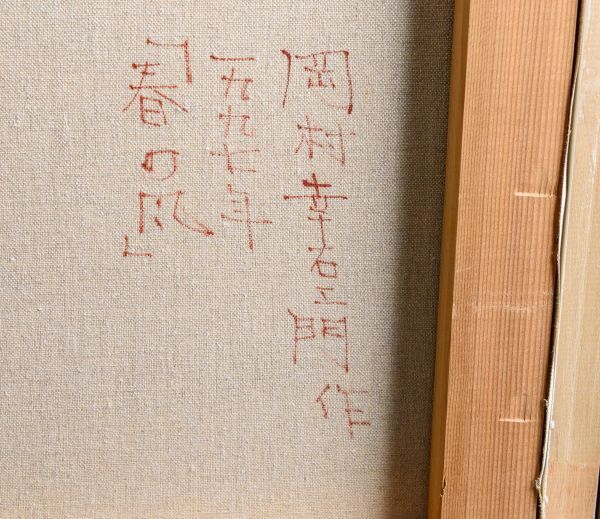 岡村幸右エ門作
一九九七年
「春の風」